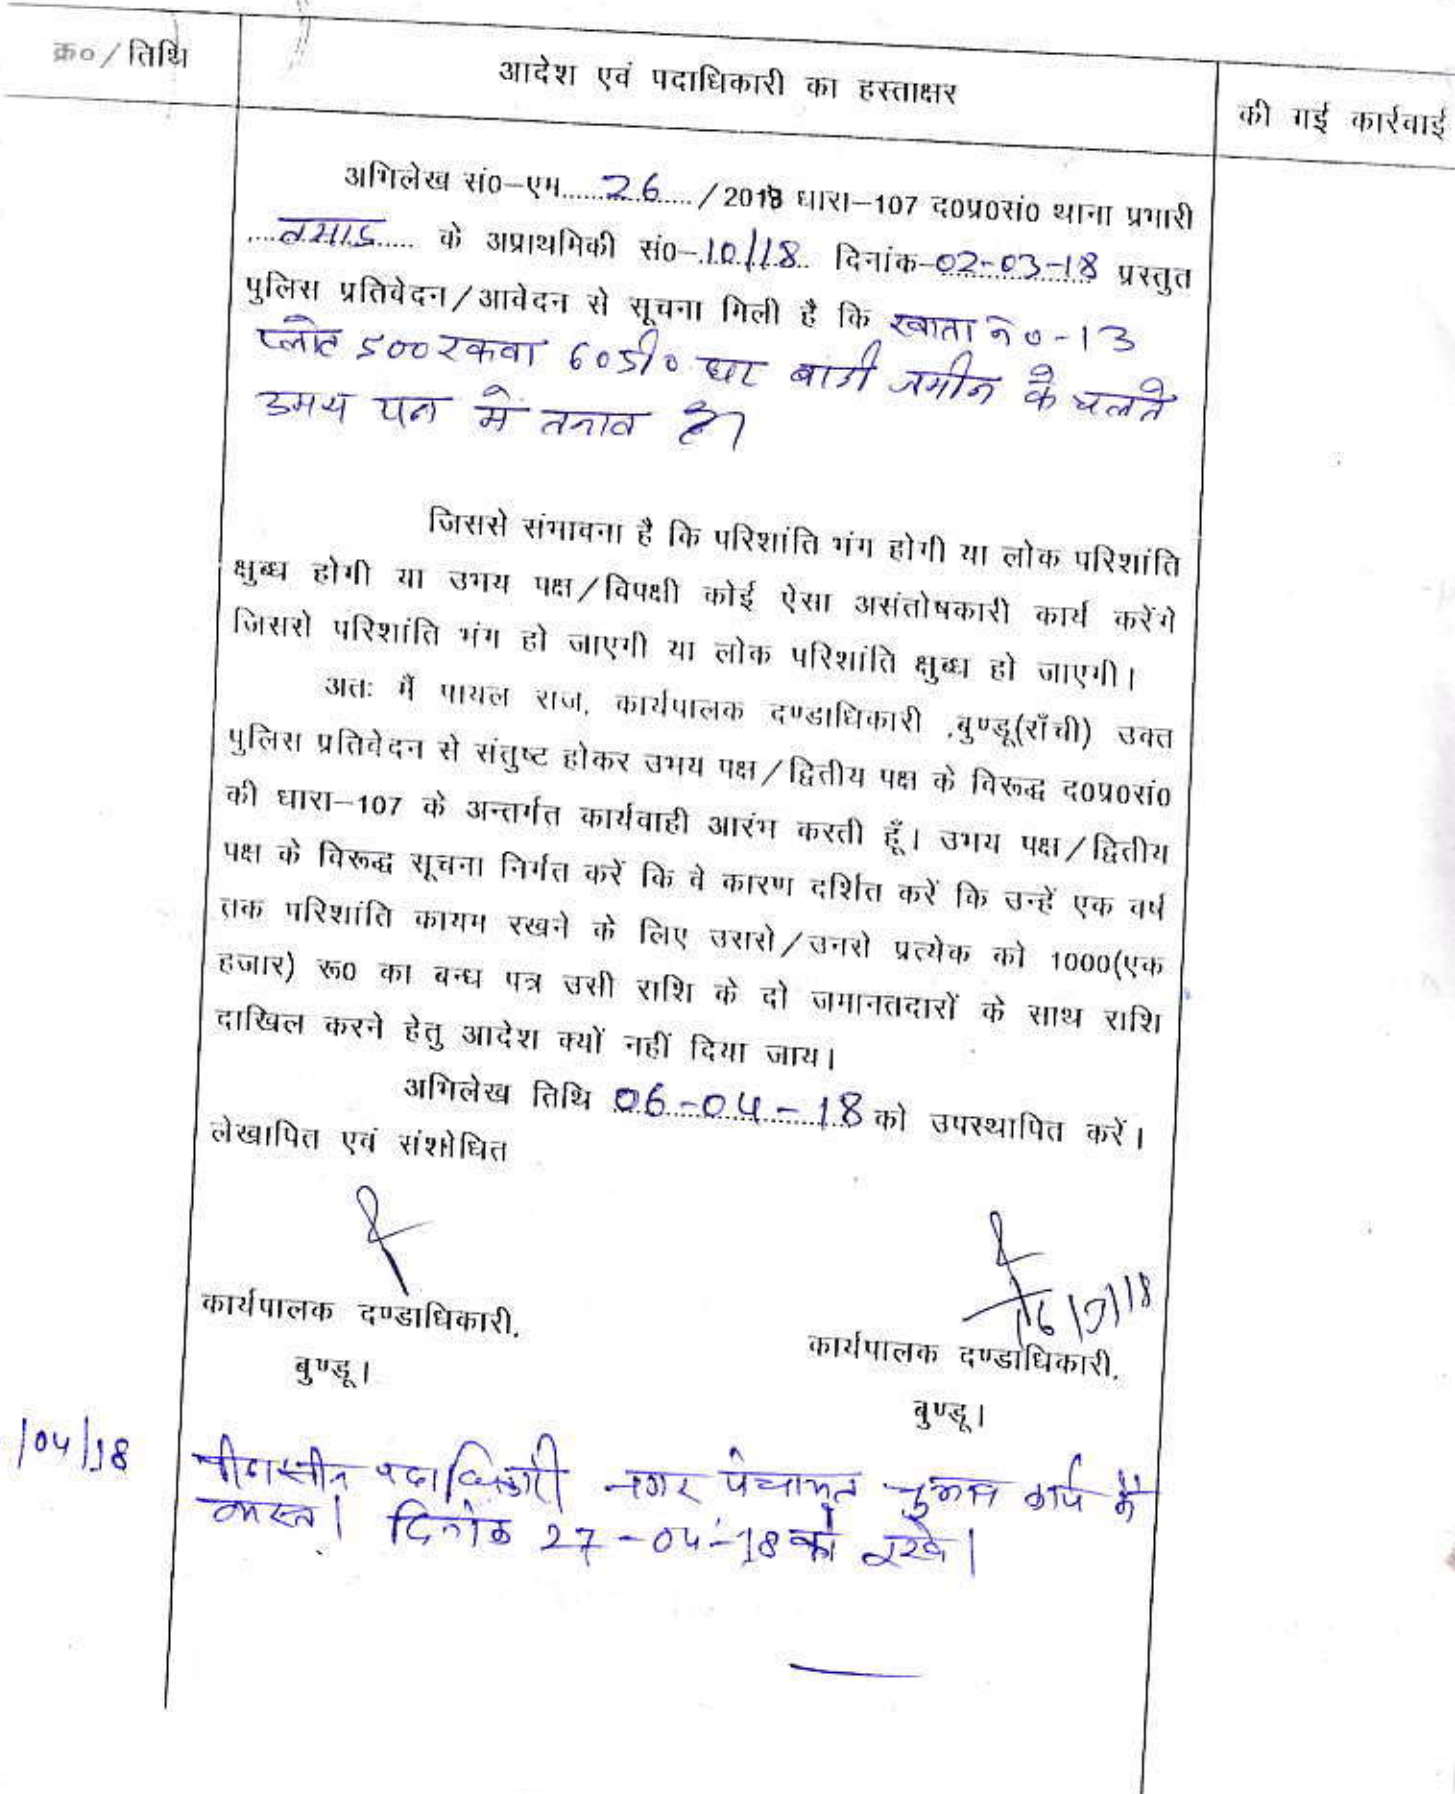 क्र० / तिथि
आदेश एवं पदाधिकारी का हस्ताक्षर
की गई कार्रवाई
अभिलेख सं०-एम.....26..../2018 धारा-107 द०प्र०सं० थाना प्रभारी
....तमाड़..... के अप्राथमिकी सं०-10/18 दिनांक-02-03-18 प्रस्तुत
पुलिस प्रतिवेदन/आवेदन से सूचना मिली है कि खाता नं०-13
प्लॉट 500 रकवा 60 डी० घर बारी जमीन के चलते
उभय पक्ष में तनाव है।
जिससे संभावना है कि परिशांति भंग होगी या लोक परिशांति
क्षुब्ध होगी या उभय पक्ष/विपक्षी कोई ऐसा असंतोषकारी कार्य करेंगे
जिससे परिशांति भंग हो जाएगी या लोक परिशांति क्षुब्ध हो जाएगी।
अतः मैं पायल राज, कार्यपालक दण्डाधिकारी ,बुण्डू(राँची) उक्त
पुलिस प्रतिवेदन से संतुष्ट होकर उभय पक्ष/द्वितीय पक्ष के विरूद्ध द०प्र०सं०
की धारा-107 के अन्तर्गत कार्यवाही आरंभ करती हूँ। उभय पक्ष/द्वितीय
पक्ष के विरूद्ध सूचना निर्गत करें कि वे कारण दर्शित करें कि उन्हें एक वर्ष
तक परिशांति कायम रखने के लिए उससे/उनसे प्रत्येक को 1000(एक
हजार) रू० का बन्ध पत्र उसी राशि के दो जमानतदारों के साथ राशि
दाखिल करने हेतु आदेश क्यों नहीं दिया जाय।
अभिलेख तिथि 06-04-18 को उपस्थापित करें।
लेखापित एवं संशोधित
16/3/18
कार्यपालक दण्डाधिकारी,
बुण्डू।
कार्यपालक दण्डाधिकारी,
बुण्डू।
/04/18
पीठासीन पदाधिकारी नगर पंचायत चुनाव कार्य में
व्यस्त। दिनांक 27-04-18 को रखें।